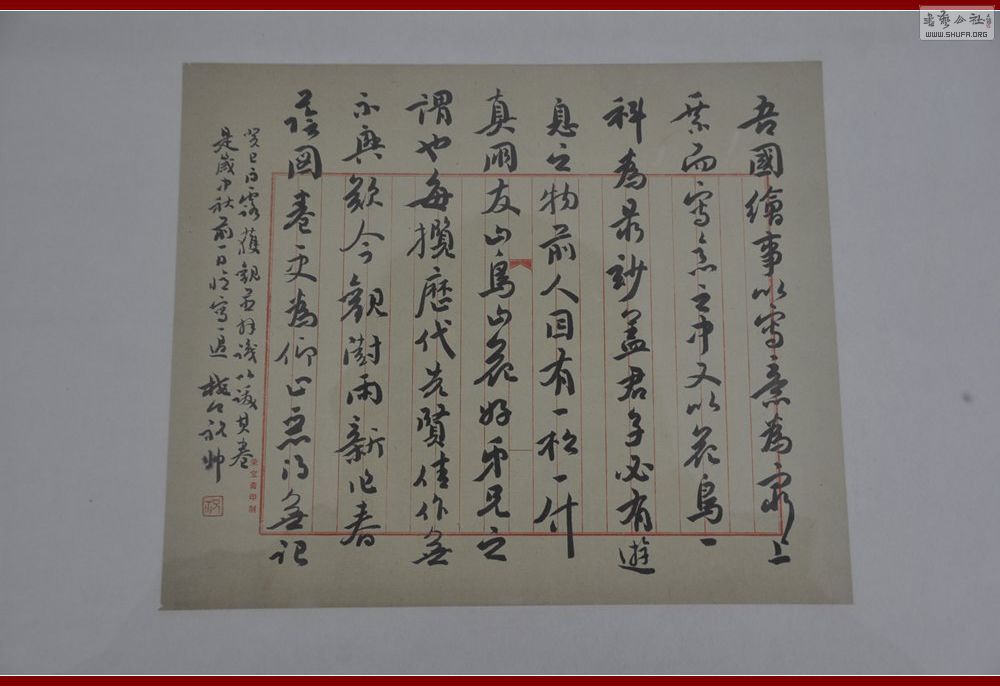 吾國繪事以寫意為最上
乘而寫意之中又以花鳥一
科為最妙蓋君子必有遊
息之物前人因有一松一竹
真朋友山鳥山花好弟兄之
謂也每攬歷代先賢佳作無
不興歎今觀澍雨新作春
蔭圖卷更為仰止烏得無記
癸巳白露獲觀並拜識以誌其卷
是歲中秋前一日
寫一過
祝帥
榮寶齋印制
WWW.SHUFA.ORG